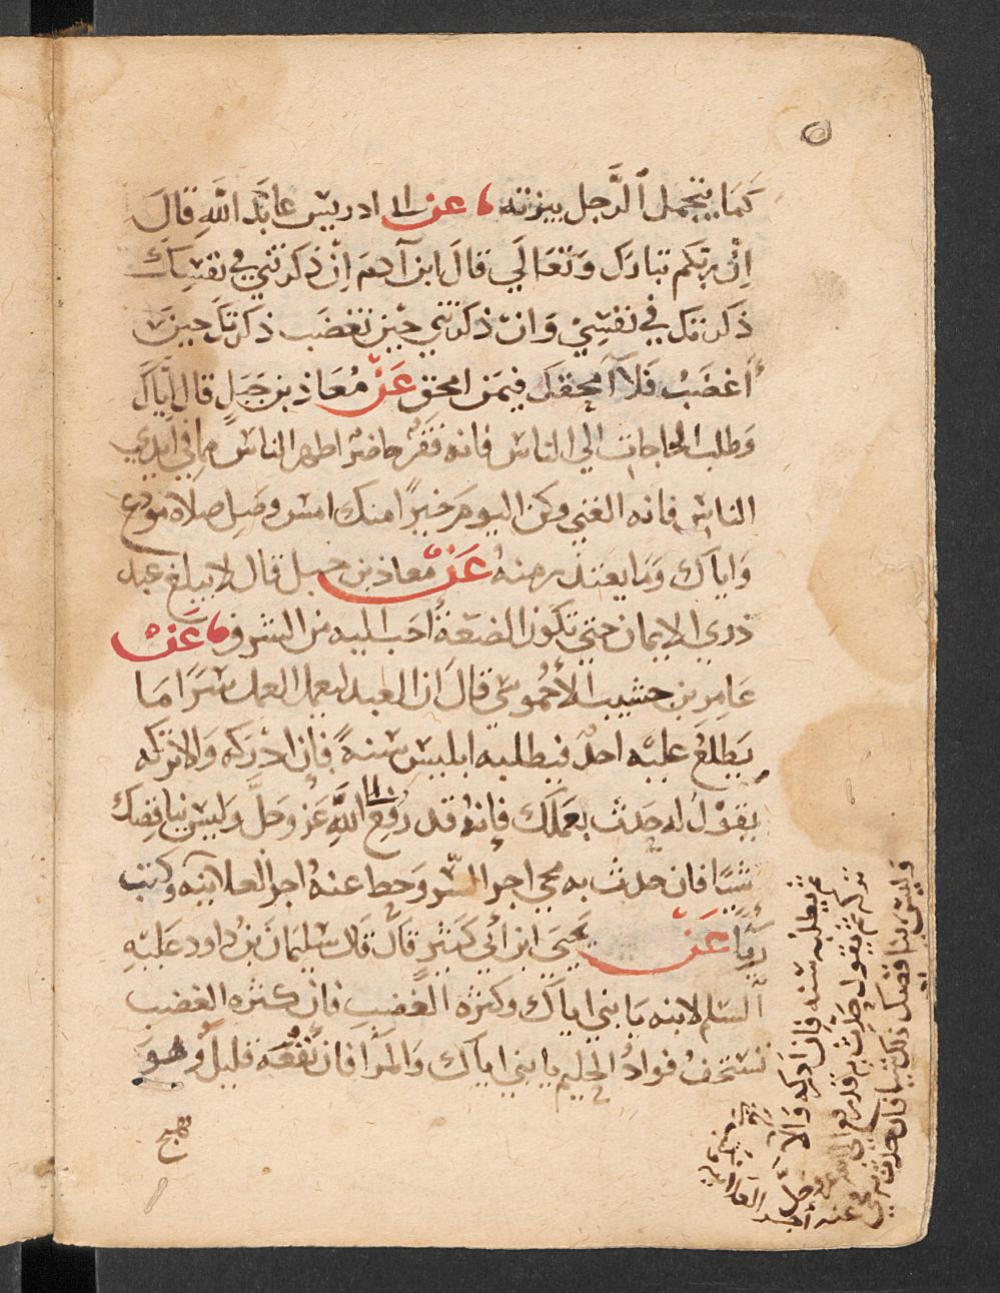 كَمَا يتجمل الرَّجل ببزته عن ابي ادريس عايذ الله قالَ
اِنَّ ربّكم تبارَك وَتَعَالَي قالَ ابن آدمَ اِنْ ذكرتني في نفسِكَ
ذكرتك في نفسِيْ وَان ذكرتني حِيْن تغضَب ذكرتكَ حين
أَغضَبُ فَلا اَمحقكَ فيمَن امحق عَنْ مُعَاذ بن جَبَلٍ قال ايّاكَ
وَطلب الحاجات الي الناس فانه فقرٌ حاضرٌ اظهر الناس مما في ايدي
الناس فانه الغني وكن اليومَ خيرًا منك امس وصَل صلاة مودع
وَاياكَ وَمَا يعتذر منهُ عَنْ معاذ بن جبل قال لا يبلغ عبد
ذري الايمان حتي تكون الضعَةُ احَبّ اليه من الشرف عَنْ
عَامِر بن حشيب الأحموسي قالَ ان العبد ليعمل العمل سرًا مَا
يَطلعُ عليْه احدٌ فيطلبه ابليس سنةً فان ادركه وَالا تركه
يقوْلُ له حدث بعَملكَ فانهُ قد رُفِعَ الي اللهِ عَز وَجَلَّ وَليسَ بناقصك
شيئًا فان حدث به محي اجر السّر وَحط عنهُ اجر العلانيه وكتب
رِيًا عَنْ يَحيَى ابن أبي كَثيرٍ قالَ قالَ سليمانَ بن داود عَليْهِ
السَّلم لابنه يَا بني اياكَ وكثرة الغضب فان كثرة الغضب
تستخفُ فوادُ الحليم يا بني اياكَ وَالمرَا فان نفعَه قليلٌ وهوَ
ثم يطلبه سنه فان ادركه وَالا
تركه ثم يقول حدث به قد رفع الي الله عز وجل
وَليس بناقصك ذلك شيا فان حدث به محي
عنه اجر العلانيه